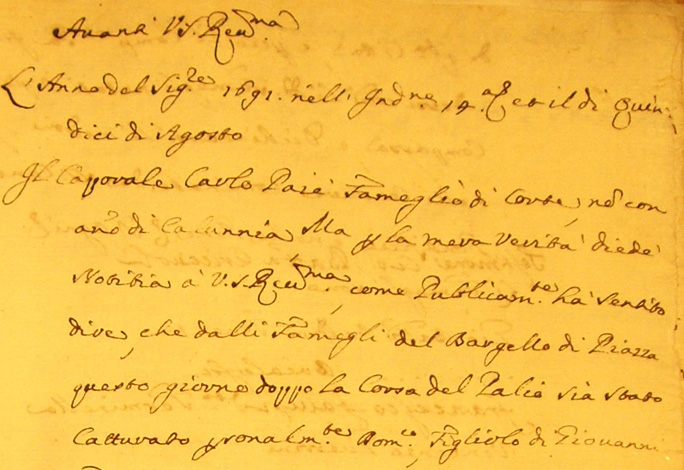 Avanti V.S. Reu.ma
L'Anno del Sig.re 1691. nell' Ind.ne 14.a et il di Quin:
dici di Agosto
Il Caporale Carlo Paie Fameglio di Corte, nõ con
año di Calunnia Ma p la mera Verita' diede
Notitia à V.S. Reu.ma, come Publicam.te ha sentito
dire, che dalli Famegli del Bargello di Piazza
questo giorno doppo la Corsa del Palio sia stato
Catturato psonalm.te Dom.co Figliolo di Giovanni